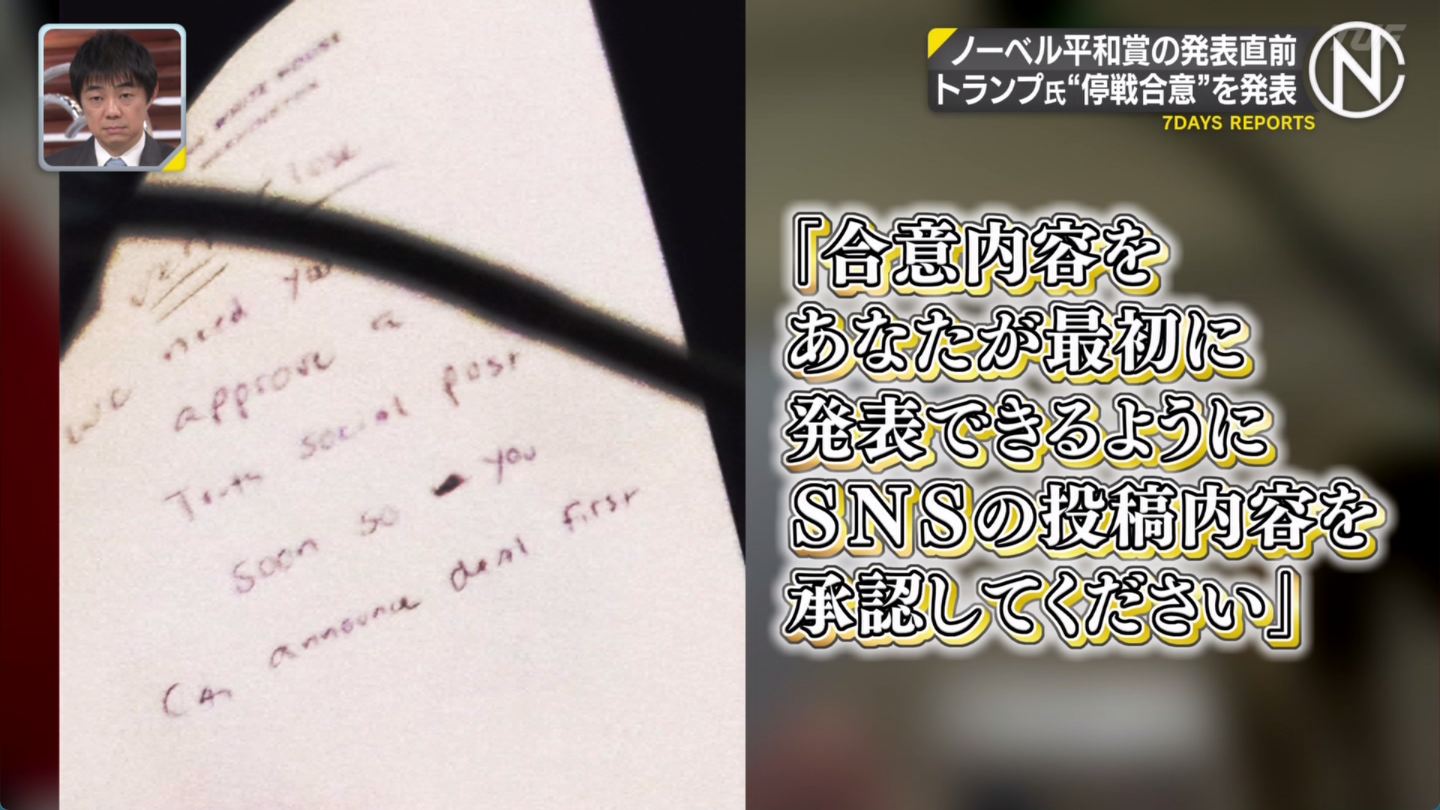 ノーベル平和賞の発表直前
トランプ氏“停戦合意”を発表
N
7DAYS REPORTS
TUF
THE WHITE HOUSE
WASHINGTON
Very close
We need you
approve a
Truth social post
soon so you
Can announce deal first
『合意内容を
あなたが最初に
発表できるように
SNSの投稿内容を
承認してください』